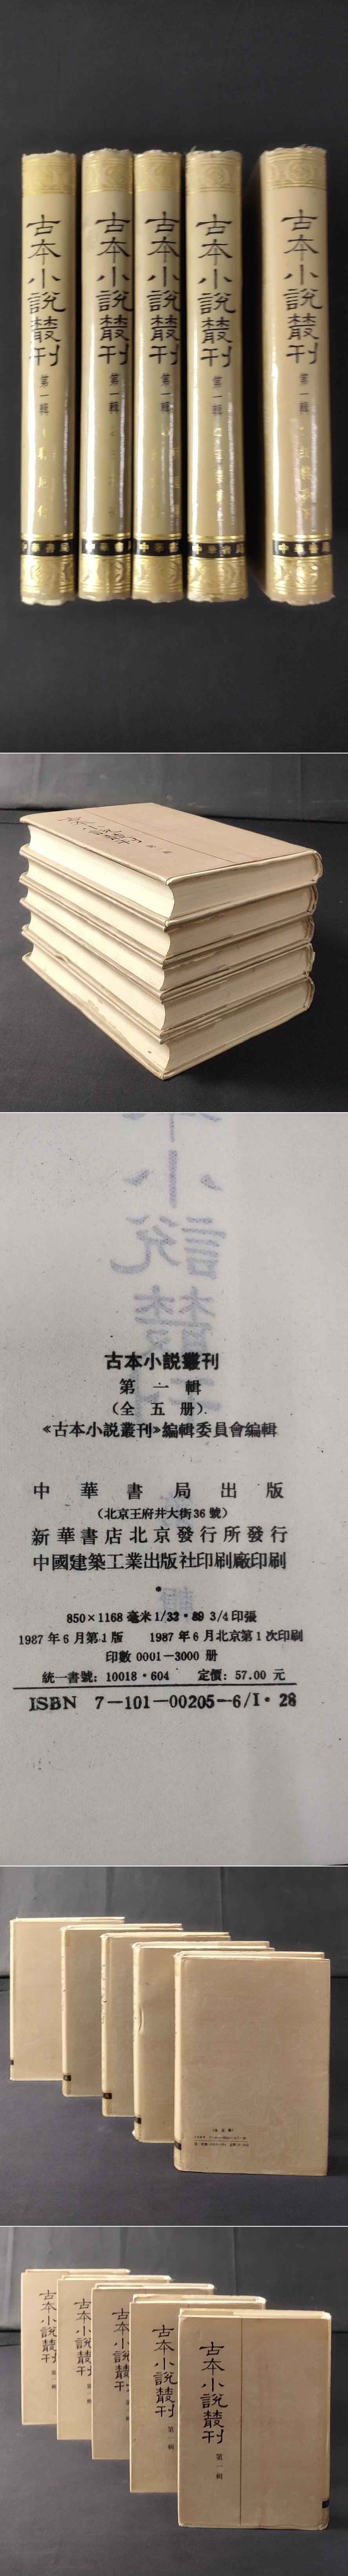 古本小說叢刊
第一輯
中華書局
古本小說叢刊
第一輯
中華書局
古本小說叢刊
第一輯
中華書局
古本小說叢刊
第一輯
中華書局
古本小說叢刊
第一輯
中華書局
古本小說叢刊
小說叢
古本小説叢刊
第一輯
(全五册)
《古本小説叢刊》編輯委員會編輯
中華書局出版
(北京王府井大街36號)
新華書店北京發行所發行
中國建築工業出版社印刷廠印刷
850×1168毫米1/32·89 3/4印張
1987年6月第1版 1987年6月北京第1次印刷
印數0001—3000册
統一書號:10018·604 定價:57.00元
ISBN 7—101—00205—6/I·28
古本小說叢刊
第一輯
古本小說叢刊
第一輯
古本小說叢刊
第一輯
古本小說叢刊
第一輯
古本小說叢刊
第一輯